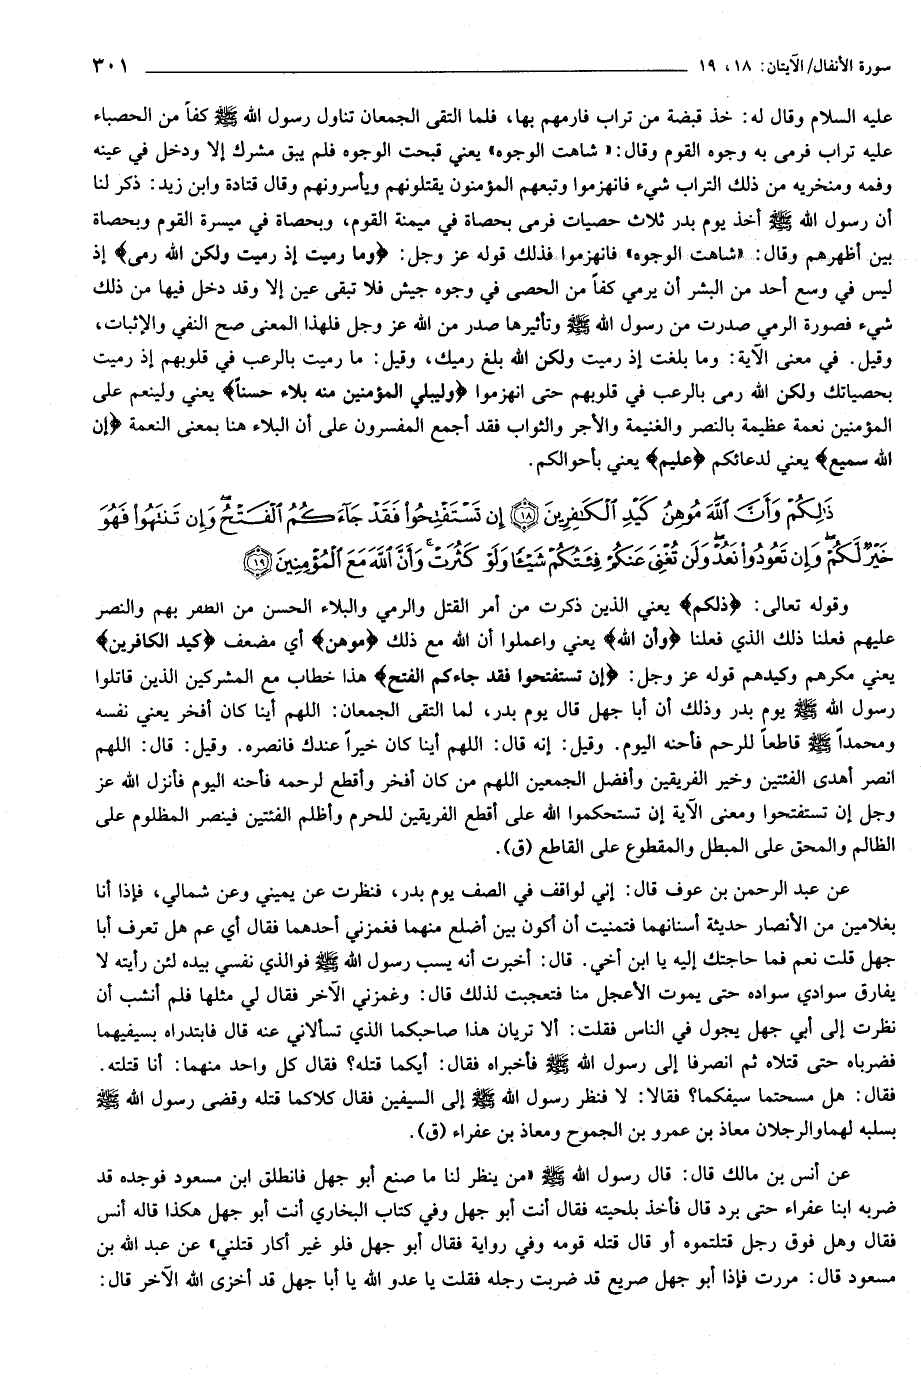 سورة الأنفال/ الآيتان: ١٨، ١٩ ٣٠١
عليه السلام وقال له: خذ قبضة من تراب فارمهم بها، فلما التقى الجمعان تناول رسول الله ﷺ كفاً من الحصباء
عليه تراب فرمى به وجوه القوم وقال: «شاهت الوجوه» يعني قبحت الوجوه فلم يبق مشرك إلا ودخل في عينه
وفمه ومنخريه من ذلك التراب شيء فانهزموا وتبعهم المؤمنون يقتلونهم ويأسرونهم وقال قتادة وابن زيد: ذكر لنا
أن رسول الله ﷺ أخذ يوم بدر ثلاث حصيات فرمى بحصاة في ميمنة القوم، وبحصاة في ميسرة القوم وبحصاة
بين أظهرهم وقال: «شاهت الوجوه» فانهزموا فذلك قوله عز وجل: ﴿وما رميت إذ رميت ولكن الله رمى﴾ إذ
ليس في وسع أحد من البشر أن يرمي كفاً من الحصى في وجوه جيش فلا تبقى عين إلا وقد دخل فيها من ذلك
شيء فصورة الرمي صدرت من رسول الله ﷺ وتأثيرها صدر من الله عز وجل فلهذا المعنى صح النفي والإثبات،
وقيل. في معنى الآية: وما بلغت إذ رميت ولكن الله بلغ رميك، وقيل: ما رميت بالرعب في قلوبهم إذ رميت
بحصياتك ولكن الله رمى بالرعب في قلوبهم حتى انهزموا ﴿وليبلي المؤمنين منه بلاء حسناً﴾ يعني ولينعم على
المؤمنين نعمة عظيمة بالنصر والغنيمة والأجر والثواب فقد أجمع المفسرون على أن البلاء هنا بمعنى النعمة ﴿إن
الله سميع﴾ يعني لدعائكم ﴿عليم﴾ يعني بأحوالكم.
ذَٰلِكُمْ وَأَنَّ ٱللَّهَ مُوهِنُ كَيْدِ ٱلْكَٰفِرِينَ ﴿١٨﴾ إِن تَسْتَفْتِحُوا۟ فَقَدْ جَآءَكُمُ ٱلْفَتْحُ ۖ وَإِن تَنتَهُوا۟ فَهُوَ
خَيْرٌ لَّكُمْ ۖ وَإِن تَعُودُوا۟ نَعُدْ ۖ وَلَن تُغْنِىَ عَنكُمْ فِئَتُكُمْ شَيْـًٔا وَلَوْ كَثُرَتْ ۚ وَأَنَّ ٱللَّهَ مَعَ ٱلْمُؤْمِنِينَ ﴿١٩﴾
وقوله تعالى: ﴿ذلكم﴾ يعني الذين ذكرت من أمر القتل والرمي والبلاء الحسن من الظفر بهم والنصر
عليهم فعلنا ذلك الذي فعلنا ﴿وأن الله﴾ يعني واعلموا أن الله مع ذلك ﴿موهن﴾ أي مضعف ﴿كيد الكافرين﴾
يعني مكرهم وكيدهم قوله عز وجل: ﴿إن تستفتحوا فقد جاءكم الفتح﴾ هذا خطاب مع المشركين الذين قاتلوا
رسول الله ﷺ يوم بدر وذلك أن أبا جهل قال يوم بدر، لما التقى الجمعان: اللهم أينا كان أفخر يعني نفسه
ومحمداً ﷺ قاطعاً للرحم فأحنه اليوم. وقيل: إنه قال: اللهم أينا كان خيراً عندك فانصره. وقيل: قال: اللهم
انصر أهدى الفئتين وخير الفريقين وأفضل الجمعين اللهم من كان أفخر وأقطع لرحمه فأحنه اليوم فأنزل الله عز
وجل إن تستفتحوا ومعنى الآية إن تستحكموا الله على أقطع الفريقين للحرم وأظلم الفئتين فينصر المظلوم على
الظالم والمحق على المبطل والمقطوع على القاطع (ق).
عن عبد الرحمن بن عوف قال: إني لواقف في الصف يوم بدر، فنظرت عن يميني وعن شمالي، فإذا أنا
بغلامين من الأنصار حديثة أسنانهما فتمنيت أن أكون بين أضلع منهما فغمزني أحدهما فقال أي عم هل تعرف أبا
جهل قلت نعم فما حاجتك إليه يا ابن أخي. قال: أخبرت أنه يسب رسول الله ﷺ فوالذي نفسي بيده لئن رأيته لا
يفارق سوادي سواده حتى يموت الأعجل منا فتعجبت لذلك قال: وغمزني الآخر فقال لي مثلها فلم أنشب أن
نظرت إلى أبي جهل يجول في الناس فقلت: ألا تريان هذا صاحبكما الذي تسألاني عنه قال فابتدراه بسيفيهما
فضرباه حتى قتلاه ثم انصرفا إلى رسول الله ﷺ فأخبراه فقال: أيكما قتله؟ فقال كل واحد منهما: أنا قتلته.
فقال: هل مسحتما سيفكما؟ فقالا: لا فنظر رسول الله ﷺ إلى السيفين فقال كلاكما قتله وقضى رسول الله ﷺ
بسلبه لهماوالرجلان معاذ بن عمرو بن الجموح ومعاذ بن عفراء (ق).
عن أنس بن مالك قال: قال رسول الله ﷺ «من ينظر لنا ما صنع أبو جهل فانطلق ابن مسعود فوجده قد
ضربه ابنا عفراء حتى برد قال فأخذ بلحيته فقال أنت أبو جهل وفي كتاب البخاري أنت أبو جهل هكذا قاله أنس
فقال وهل فوق رجل قتلتموه أو قال قتله قومه وفي رواية فقال أبو جهل فلو غير أكار قتلني» عن عبد الله بن
مسعود قال: مررت فإذا أبو جهل صريع قد ضربت رجله فقلت يا عدو الله يا أبا جهل قد أخزى الله الآخر قال: